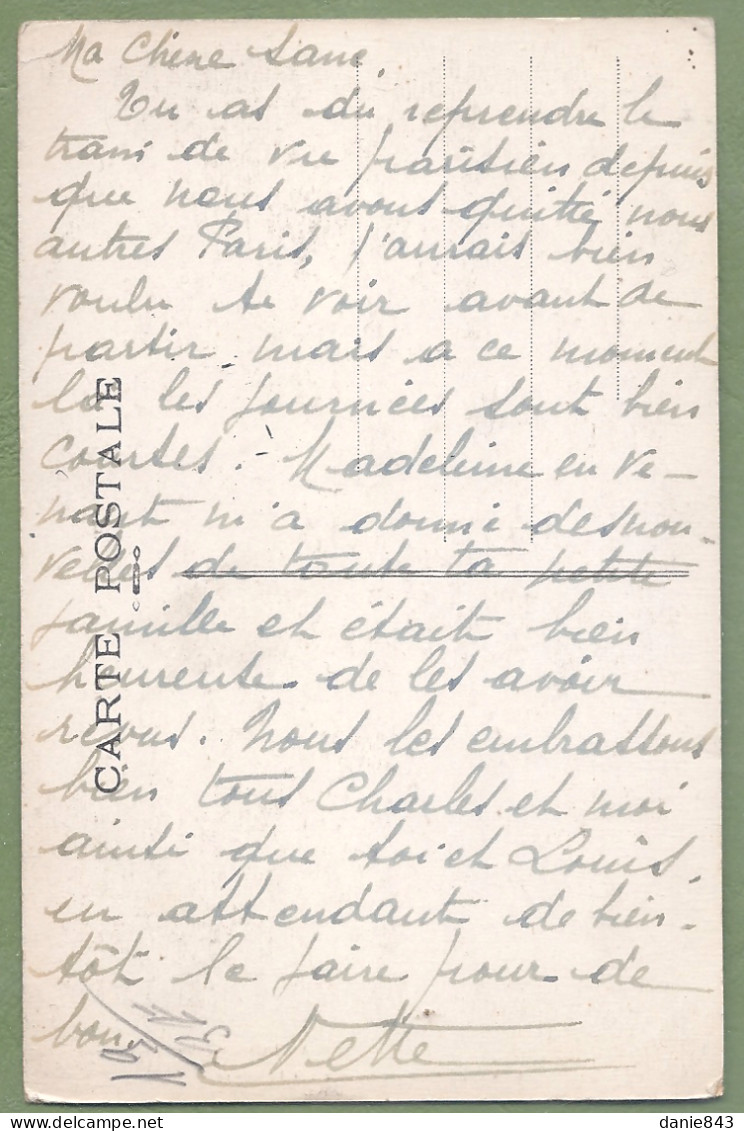 Ma Chère Jane
Tu as du reprendre le
train de vie parisien depuis
que nous avons quitté nous
autres Paris, j'aurais bien
voulu te voir avant de
partir mais a ce moment
la les journées sont bien
courtes. Madeleine en ve-
nant m'a donné des nou-
velles de toute ta petite
famille et était bien
heureuse de les avoir
revus. Nous les embrassons
bien tous Charles et moi
ainsi que toi et Louis,
en attendant de bien-
tôt le faire pour de
bon. Nette
CARTE POSTALE
danie843